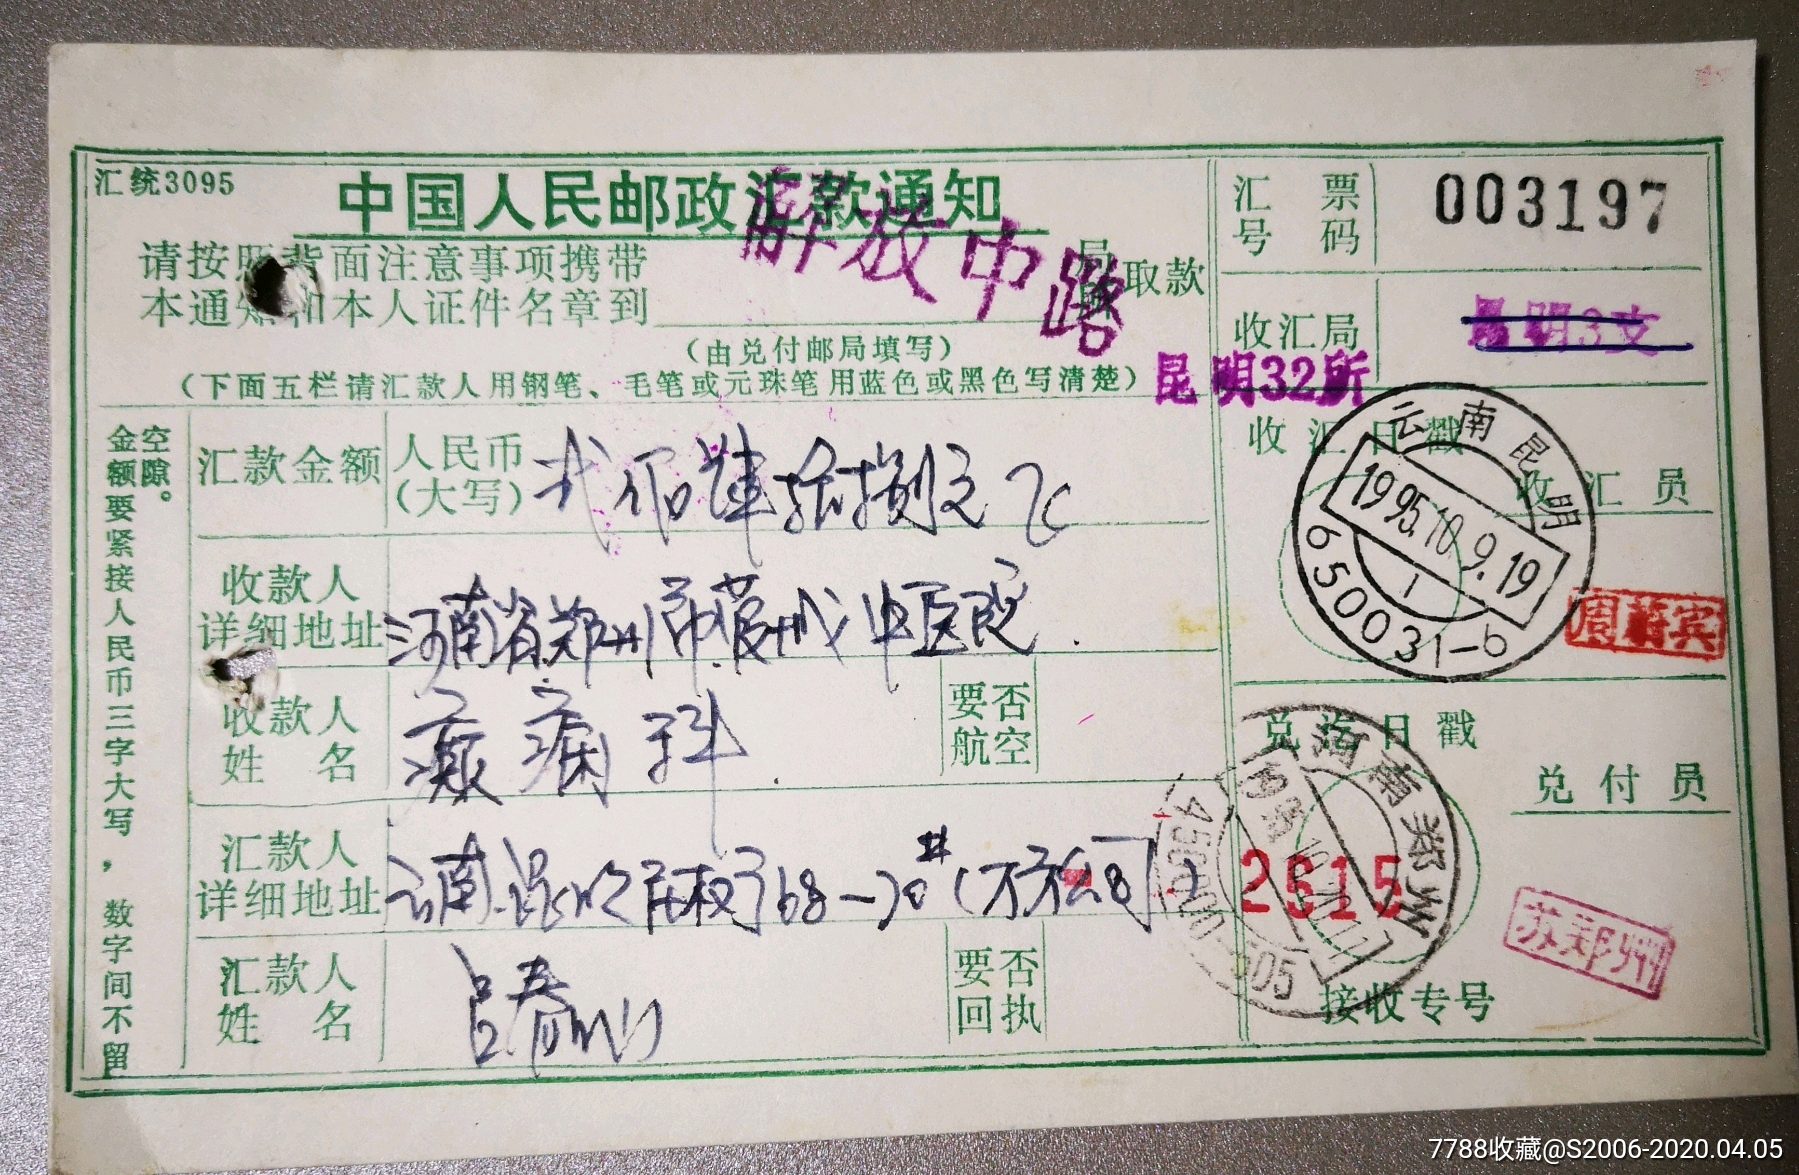 汇统3095
中国人民邮政汇款通知
解放中路
请按照背面注意事项携带
本通知和本人证件名章到
局
取款
(由兑付邮局填写)
(下面五栏请汇款人用钢笔、毛笔或元珠笔用蓝色或黑色写清楚)
汇票号码
003197
收汇局
昆明3支
昆明32所
金额要紧接人民币三字大写，数字间不留
空隙。
汇款金额
人民币
(大写)
收款人
详细地址
河南省郑州市 中医院
收款人
姓名
癫痫科
要否
航空
汇款人
详细地址
云南昆明 68-70#(
汇款人
姓名
吕春
要否
回执
收汇日戳
收汇员
云南昆明
1995.10.9.19
1
650031-6
周蔚宾
兑汇日戳
兑付员
河南郑州
2615
苏郑州
接收专号
7788收藏@S2006-2020.04.05